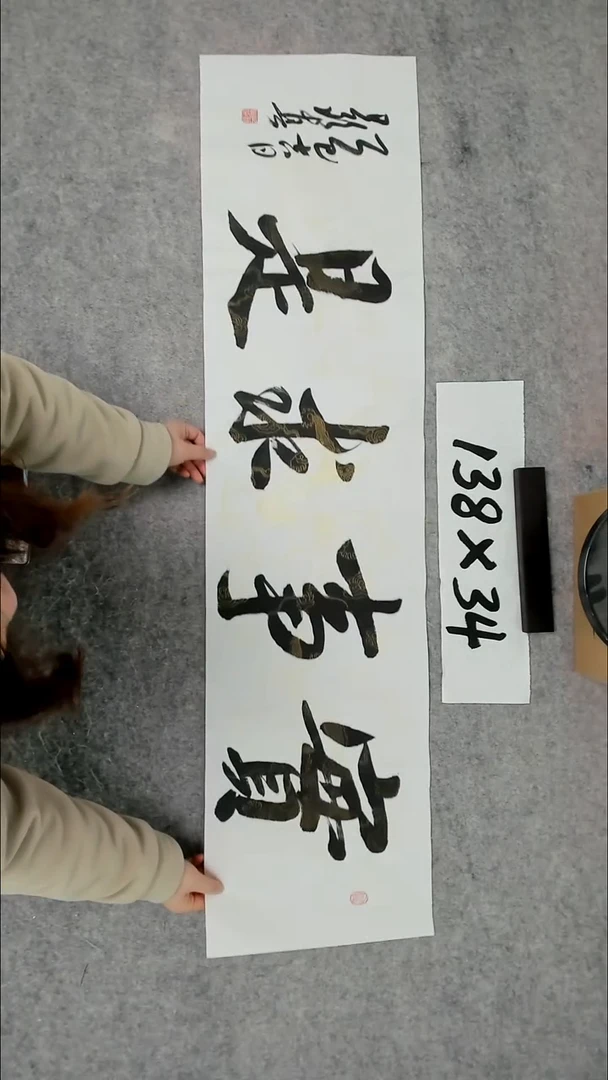 實事求是
138×34